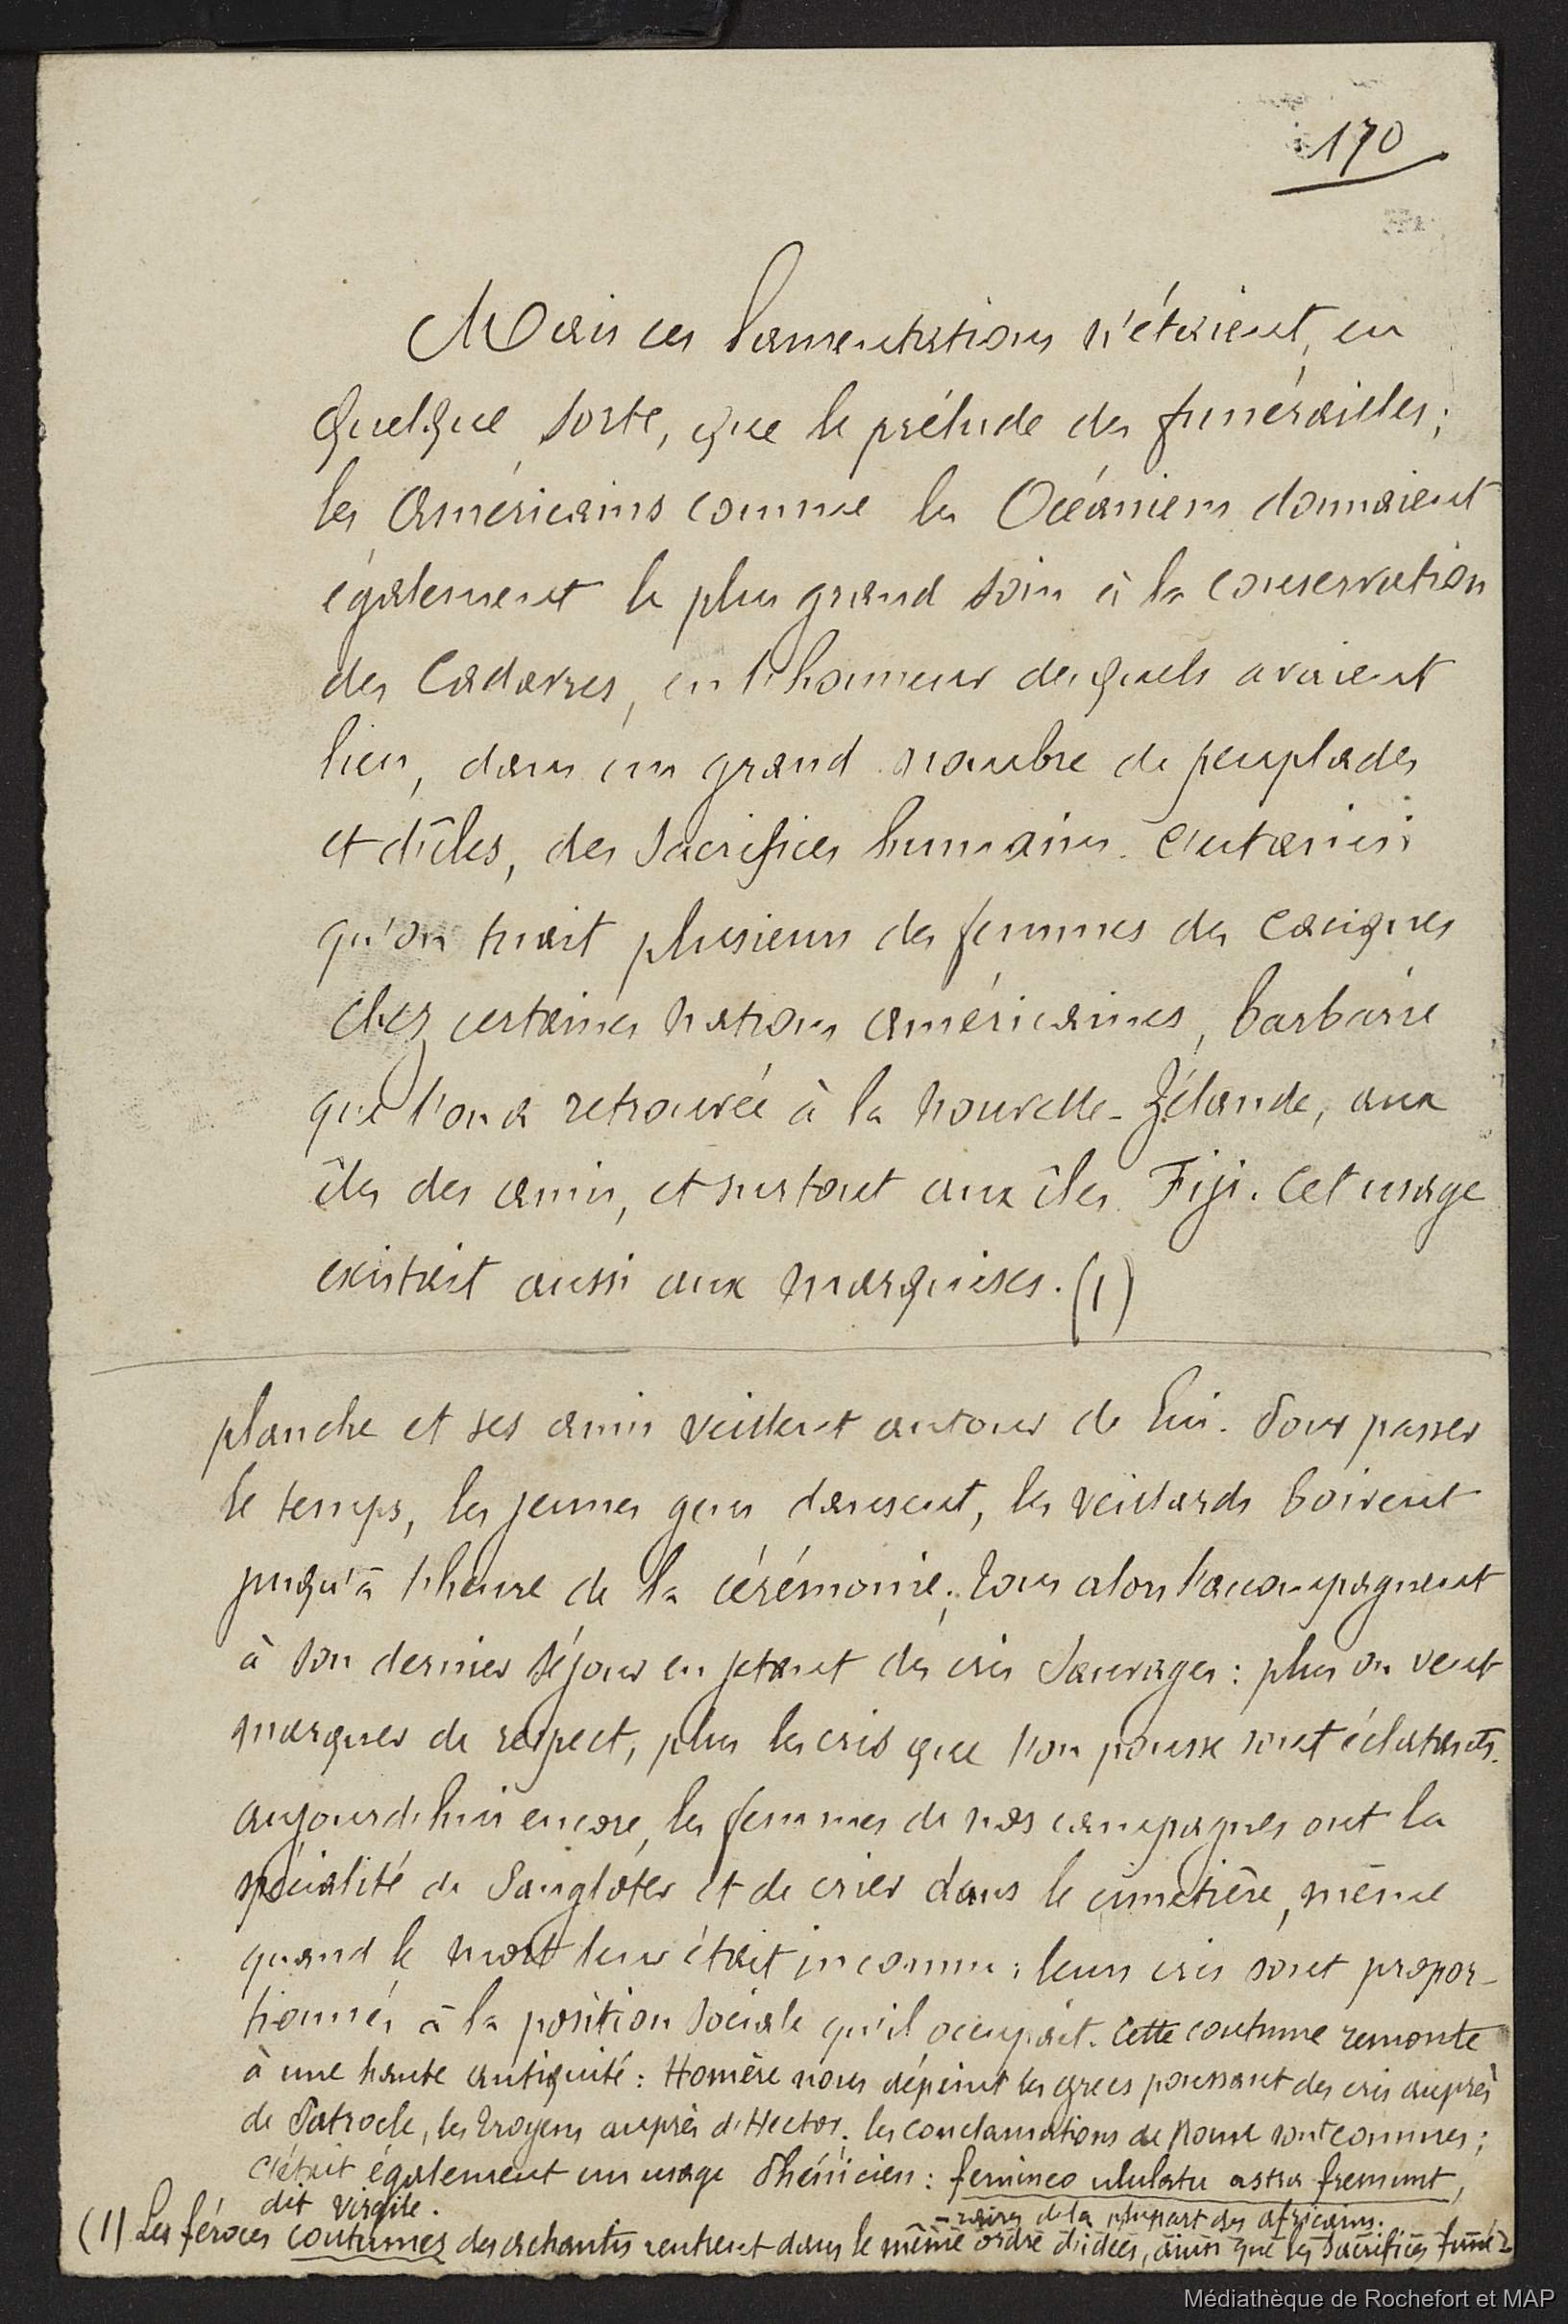 170
Mais ces lamentations n'étaient, en
quelque sorte, que le prélude des funérailles;
les Américains comme les Océaniens donnaient
également le plus grand soin à la conservation
des cadavres, en l'honneur desquels avaient
lieu, dans un grand nombre de peuplades
et d'îles, des sacrifices humains. C'est ainsi
qu'on tuait plusieurs des femmes des caciques
chez certaines nations américaines, barbarie
que l'on a retrouvée à la Nouvelle-Zélande, aux
îles des amis, et surtout aux îles Fiji. Cet usage
existait aussi aux Marquises. (1)
planche et ses amis veillent autour de lui. Pour passer
le temps, les jeunes gens dansent, les vieillards boivent
jusqu'à l'heure de la cérémonie; tous alors l'accompagnent
à son dernier séjour en jetant des cris sauvages: plus on veut
marquer de respect, plus les cris que l'on pousse sont éclatants.
aujourd'hui encore, les femmes de nos campagnes ont la
spécialité de sangloter et de crier dans le cimetière, même
quand le mort leur était inconnu: leurs cris sont propor-
tionnés à la position sociale qu'il occupait. Cette coutume remonte
à une haute antiquité: Homère nous dépeint les grecs poussant des cris auprès
de Patrocle, les Troyens auprès d'Hector; les conclamations de Rome sont connues;
c'était également un usage Phénicien: femineo ululatu astra fremunt,
dit Virgile.
(1) Les féroces coutumes des achantis rentrent dans le même ordre d'idées, ainsi que les sacrifices funé-
-raires de la plupart des africains.
Médiathèque de Rochefort et MAP